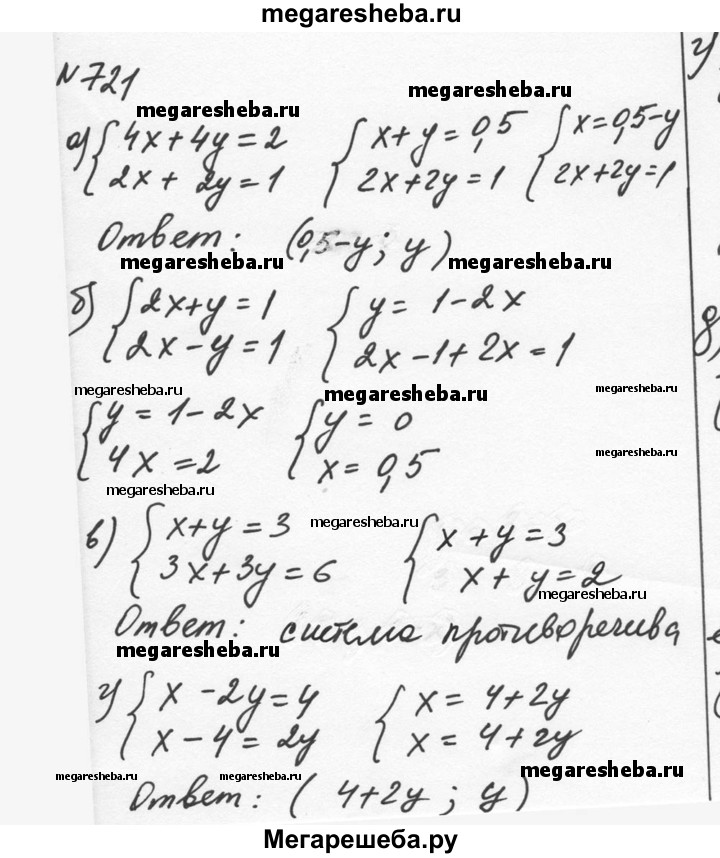 megaresheba.ru
N 721
megaresheba.ru megaresheba.ru
а) {4x+4y=2 {x+y=0,5 {x=0,5-y
{2x+2y=1 {2x+2y=1 {2x+2y=1
Ответ: (0,5-y; y)
megaresheba.ru megaresheba.ru
б) {2x+y=1 {y=1-2x
{2x-y=1 {2x-1+2x=1
megaresheba.ru megaresheba.ru megaresheba.ru
{y=1-2x {y=0
{4x=2 {x=0,5
megaresheba.ru
megaresheba.ru
в) {x+y=3 megaresheba.ru {x+y=3
{3x+3y=6 {x+y=2
megaresheba.ru
Ответ: система противоречива
megaresheba.ru
г) {x-2y=4 {x=4+2y
{x-4=2y {x=4+2y
megaresheba.ru megaresheba.ru megaresheba.ru
Ответ: (4+2y; y)
Мегарешеба.ру